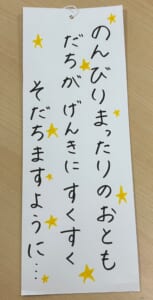 のんびりまったりのおとも
だちが げんきに すくすく
そだちますように…